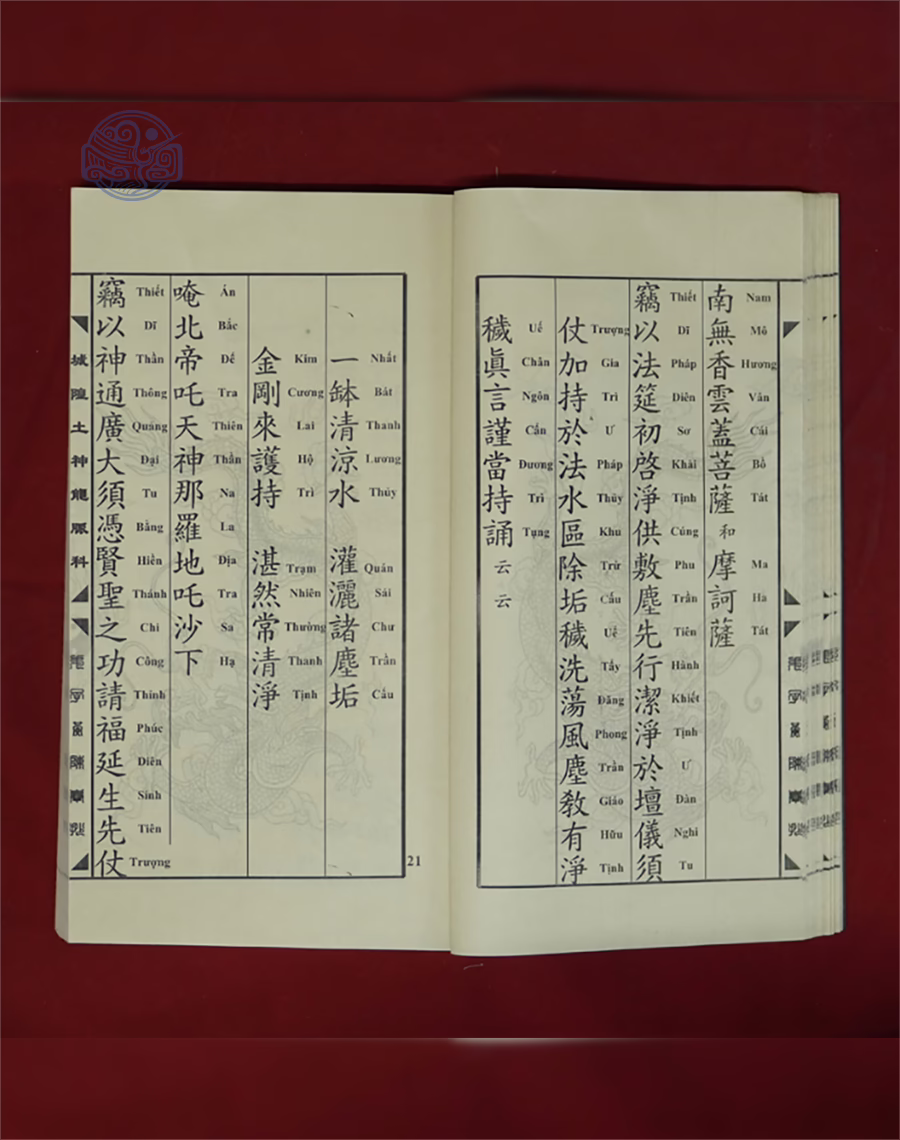 南無香雲蓋菩薩 和 摩訶薩
Nam Mô Hương Vân Cái Bồ Tát Ma Ha Tát
竊以法筵初啓淨供敷塵先行潔淨於壇儀須
Thiết Dĩ Pháp Diên Sơ Khải Tịnh Cúng Phu Trần Tiên Hành Khiết Tịnh Ư Đàn Nghi Tu
仗加持於法水區除垢穢洗蕩風塵教有淨
Trượng Gia Trì Ư Pháp Thủy Khu Trừ Cấu Uế Tẩy Đãng Phong Trần Giáo Hữu Tịnh
穢眞言謹當持誦 云云
Uế Chân Ngôn Cẩn Đương Trì Tụng
一缽清涼水 灌灑諸塵垢
Nhất Bát Thanh Lương Thủy Quán Sái Chư Trần Cấu
金剛來護持 湛然常清淨
Kim Cương Lai Hộ Trì Trạm Nhiên Thường Thanh Tịnh
唵北帝吒天神那羅地吒沙下
Án Bắc Đế Tra Thiên Thần Na La Địa Tra Sa Hạ
竊以神通廣大須憑賢聖之功請福延生先仗
Thiết Dĩ Thần Thông Quảng Đại Tu Bằng Hiền Thánh Chi Công Thỉnh Phúc Diên Sinh Tiên Trượng
城隍土神龍脈科
21